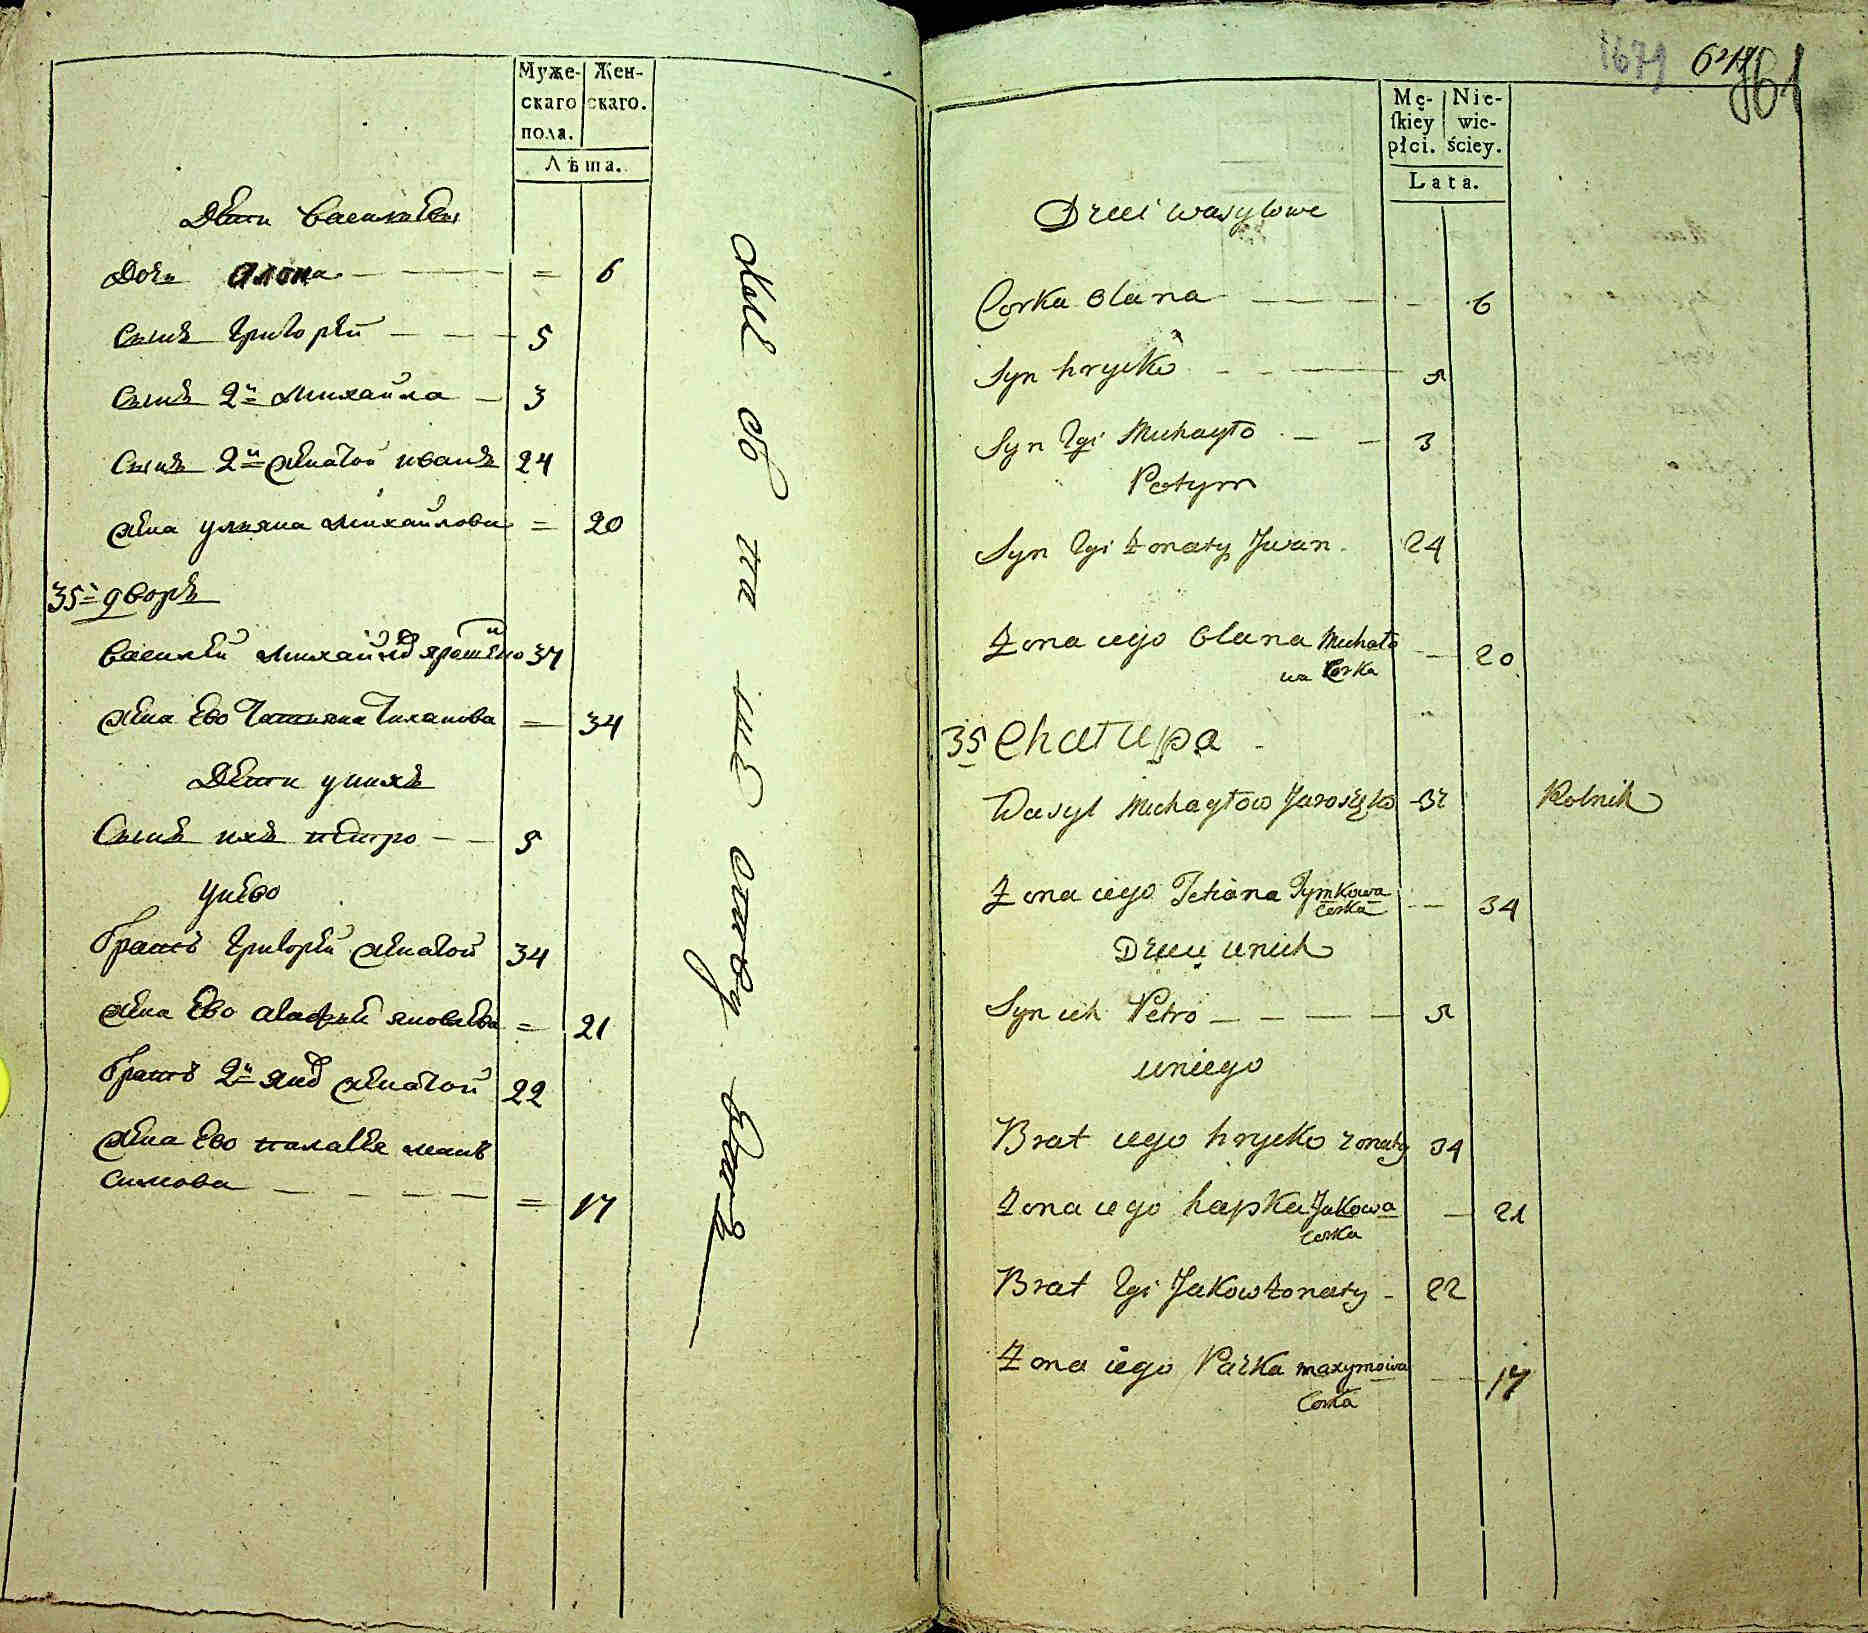 Муже-
скаго
пола.
Жен-
скаго.
Лѣта.
Дѣти Василѣвы
Дочь Алена = 6
Сынъ Григорѣй 5
Сынъ 2й Михайла 3
Сынъ 2й женатой иванъ 24
жена ульяна Михайлова = 20
35й дворъ
Василѣй Михайлов 37
жена Ево Татьяна = 34
Дѣти унихъ
Сынъ ихъ пѣтро 5
унево
братъ Григорѣй женатой 34
жена Ево яковлѣва = 21
братъ 2й яков женатой 22
жена Ево палагѣя макъ
симова = 17
1679
61
Mę-
ſkiey
płci.
Nie-
wie-
ściey.
Lata.
Dzieci wasylowe
Corka olana 6
Syn hryćko 5
Syn 2gi Michayło 3
Potym
Syn 2gi żonaty Jwan 24
żona iego olana Michało
wa Corka 20
35 Chałupa
Wasyl Michayłow Jaroszęko 37 Rolnik
żona iego Tetiana Tymkowa
Corka 34
Dzieci unich
Syn ich Petro 5
uniego
Brat iego hrycko żonaty 34
żona iego hapka Jakowa
Corka 21
Brat 2gi Jakow żonaty 22
żona iego Paźka maxymowa
Corka 17